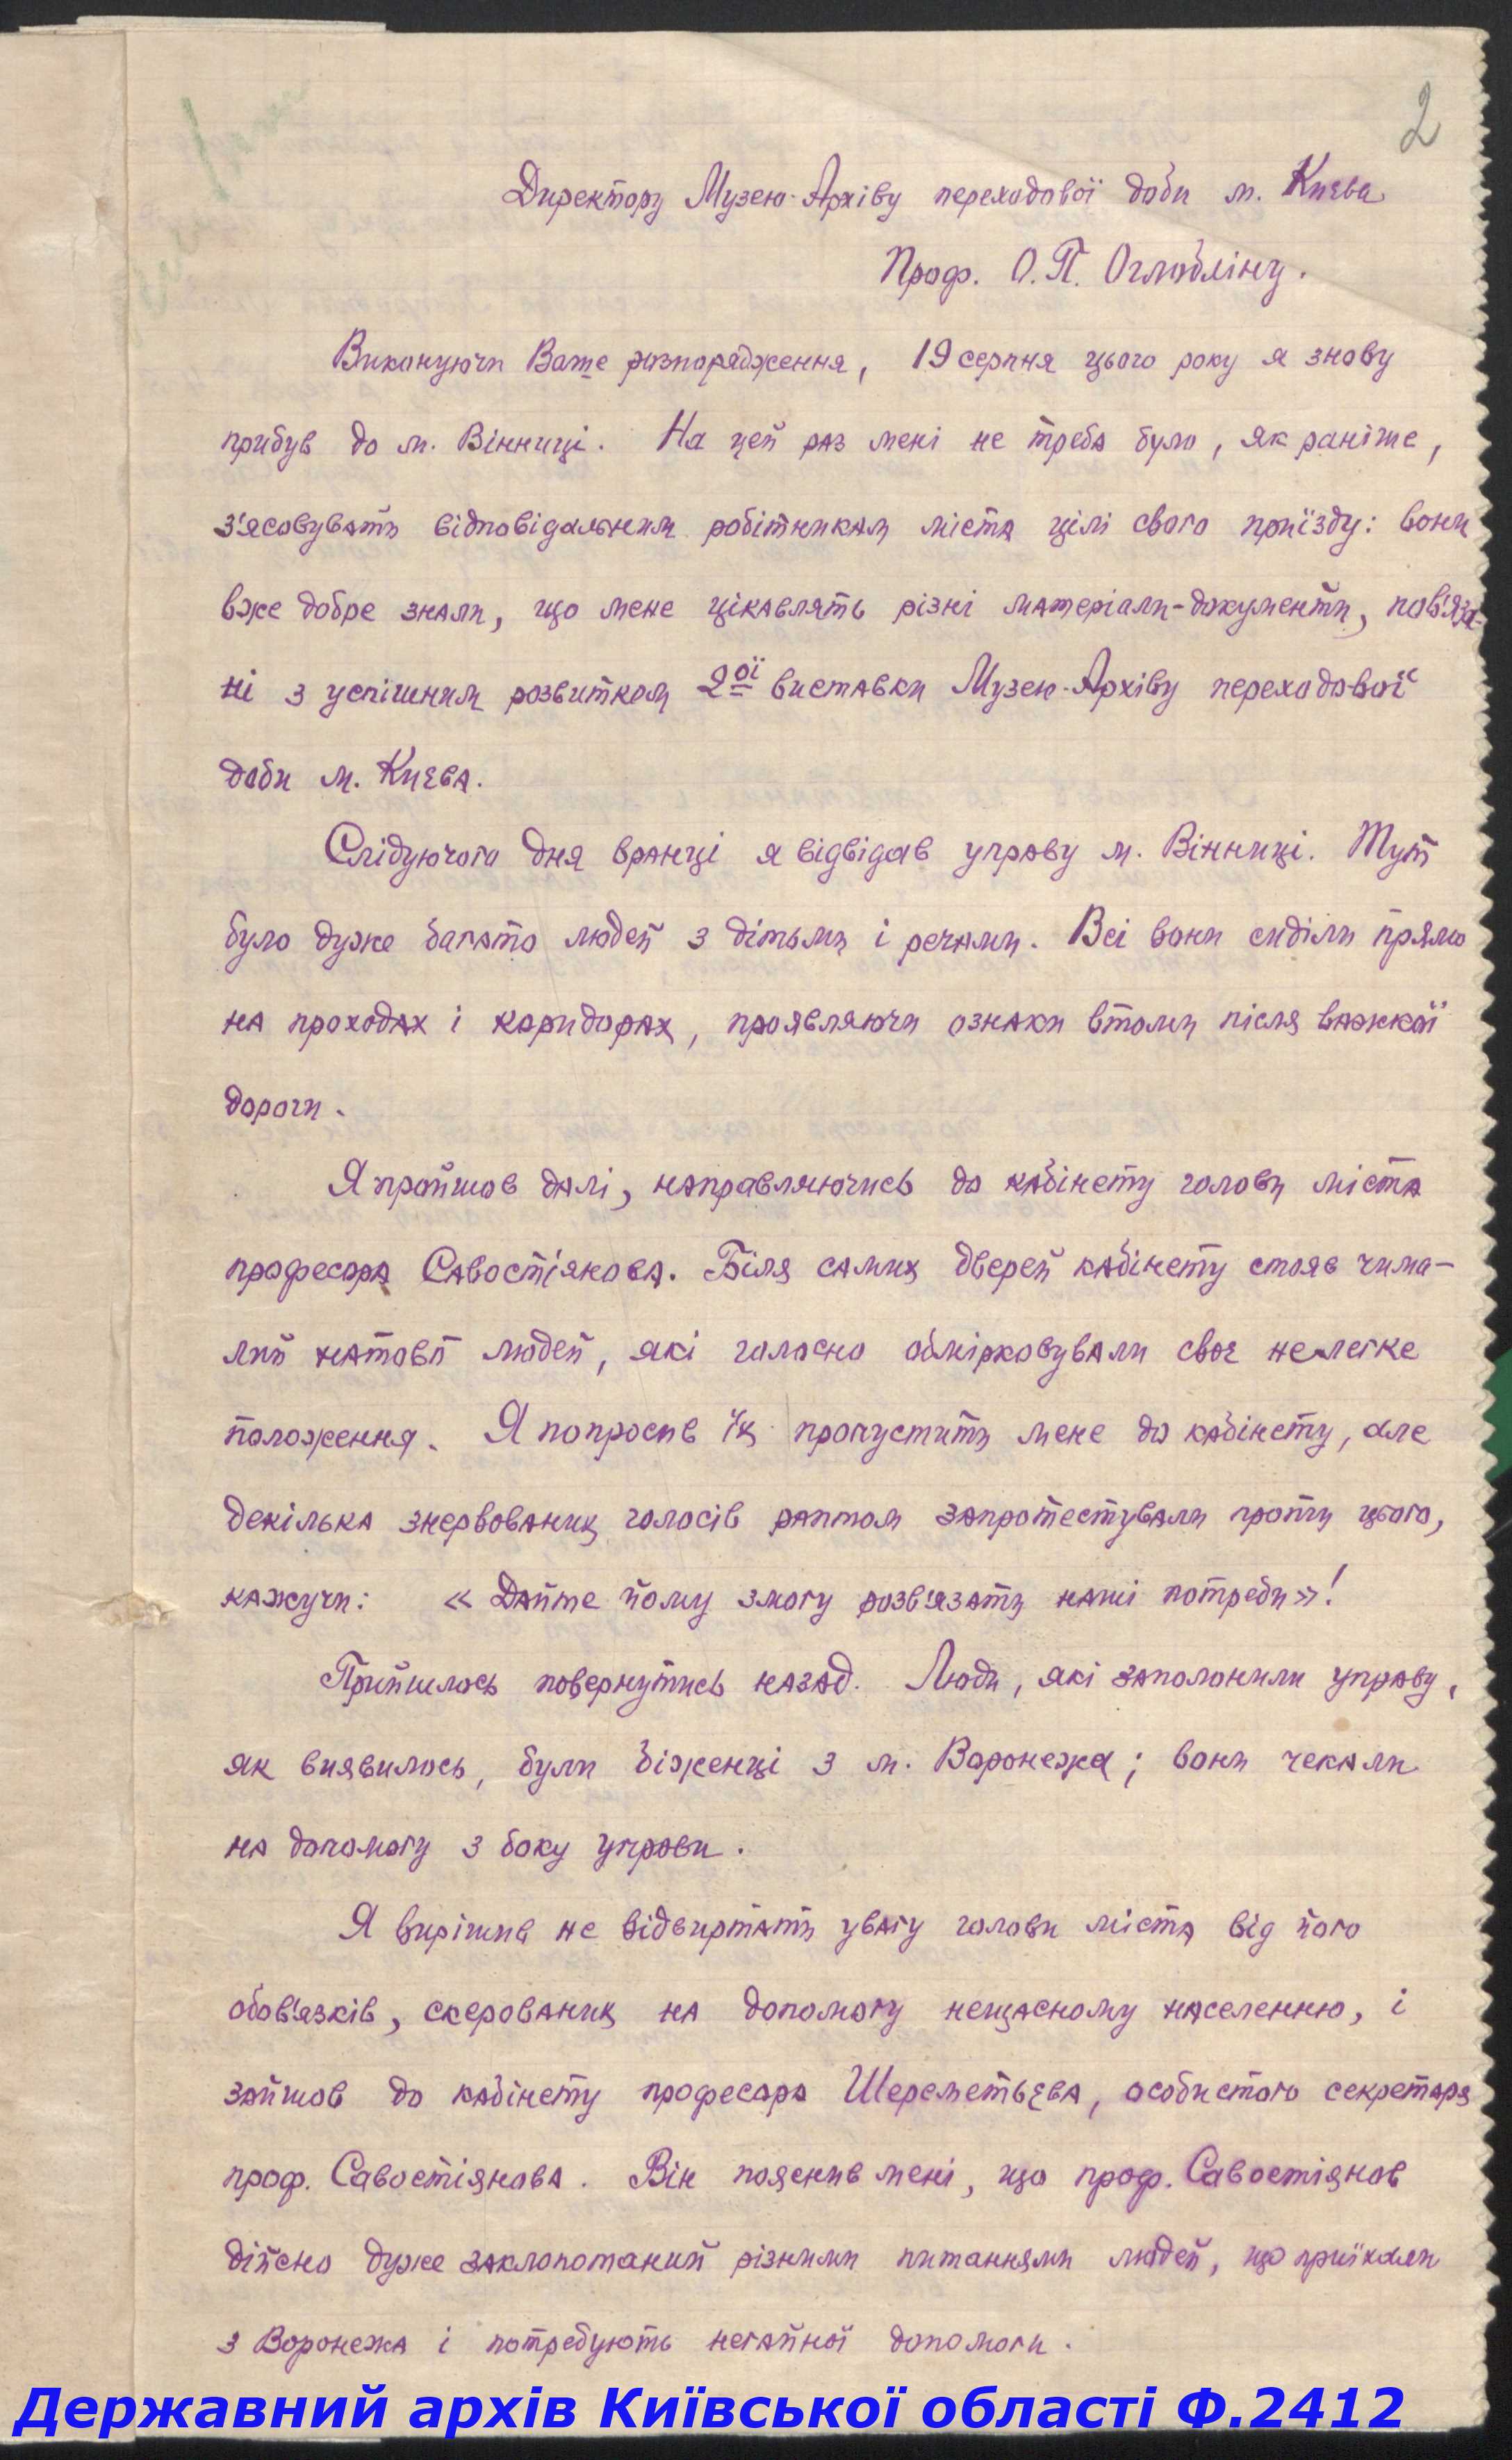 2
Директору Музею-Архіву переходової доби м. Києва
Проф. О.П. Оглобліну.
Виконуючи Ваше розпорядження, 19 серпня цього року я знову
прибув до м. Вінниці. На цей раз мені не треба було, як раніше,
з'ясовувать відповідальним робітникам міста цілі свого приїзду: вони
вже добре знали, що мене цікавлять різні матеріали-документи, пов'яза-
ні з успішним розвитком 2ої виставки Музею-Архіву переходової
доби м. Києва.
Слідуючого дня вранці я відвідав управу м. Вінниці. Тут
було дуже багато людей з дітьми і речами. Всі вони сиділи прямо
на проходах і коридорах, проявляючи ознаки втоми після важкої
дороги.
Я пройшов далі, направляючись до кабінету голови міста
професора Савостіянова. Біля самих дверей кабінету стояв чима-
лий натовп людей, які голосно обмірковували своє нелегке
положення. Я попросив їх пропустити мене до кабінету, але
декілька знервованих голосів раптом запротестували проти цього,
кажучи: « Дайте йому змогу розв'язати наші потреби»!
Прийшлось повернутись назад. Люди, які заполонили управу,
як виявилось, були біженці з м. Воронежа; вони чекали
на допомогу з боку управи.
Я вирішив не відвиртати увагу голови міста від його
обов'язків, скерованих на допомогу нещасному населенню, і
зайшов до кабінету професора Шереметьєва, особистого секретаря
проф. Савостіянова. Він пояснив мені, що проф. Савостіянов
дійсно дуже заклопотаний різними питаннями людей, що приїхали
з Воронежа і потребують негайної допомоги.
Державний архів Київської області Ф.2412